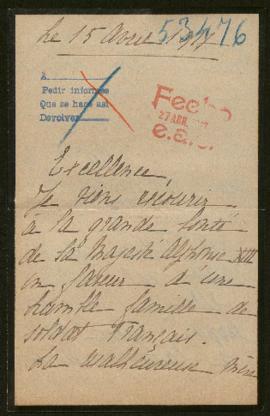 le 15 Avril
53476
A
Pedir informes
Que se hace así
Devolver
Fecho
27 ABR.
e.a.
Excellence,
Je viens recourir
à la grande bonté
de Sa Majesté Alphonse XIII
en faveur d'une
humble famille de
soldat Français.
La malheureuse mère